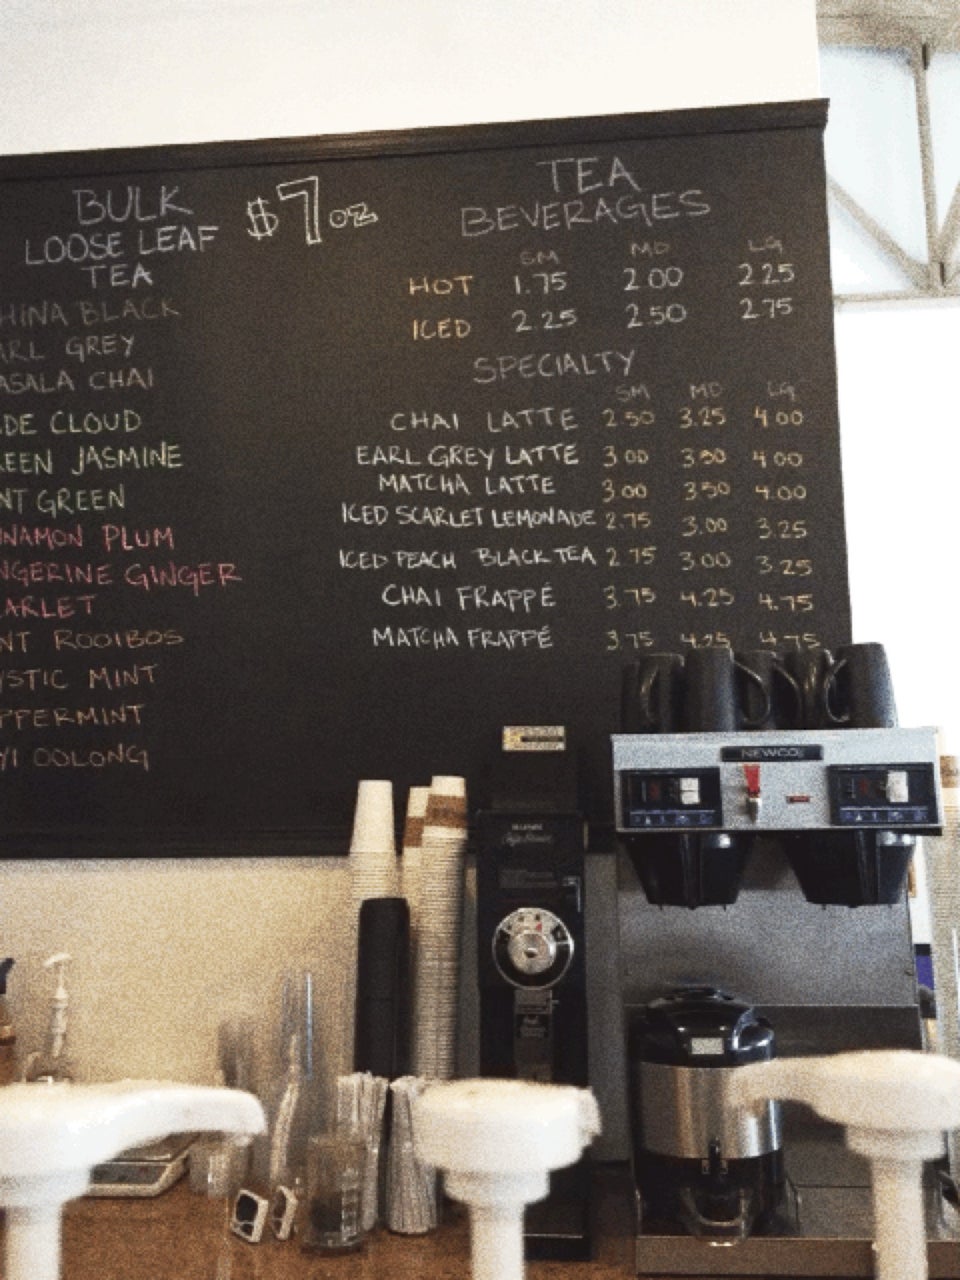 BULK
LOOSE LEAF
TEA
$7 oz
HINA BLACK
ARL GREY
ASALA CHAI
DE CLOUD
EEN JASMINE
NT GREEN
NNAMON PLUM
NGERINE GINGER
ARLET
NT ROOIBOS
YSTIC MINT
PPERMINT
YI OOLONG
TEA
BEVERAGES
SM MD LG
HOT 1.75 2.00 2.25
ICED 2.25 2.50 2.75
SPECIALTY
SM MD LG
CHAI LATTE 2.50 3.25 4.00
EARL GREY LATTE 3.00 3.50 4.00
MATCHA LATTE 3.00 3.50 4.00
ICED SCARLET LEMONADE 2.75 3.00 3.25
ICED PEACH BLACK TEA 2.75 3.00 3.25
CHAI FRAPPÉ 3.75 4.25 4.75
MATCHA FRAPPÉ 3.75 4.25 4.75
NEWCO